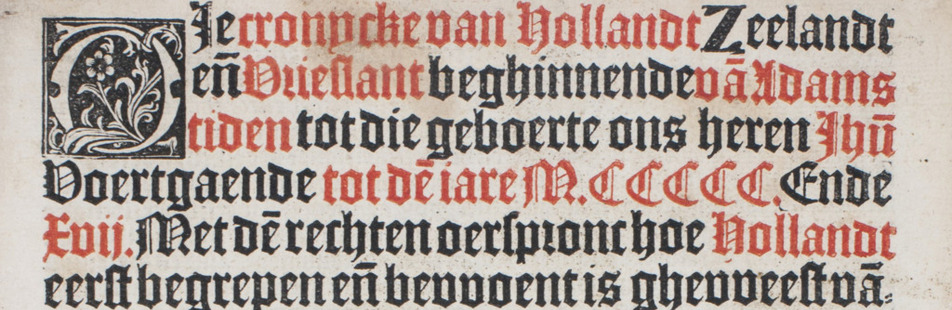 DJe cronycke van Hollandt Zeelandt
en̄ Vrieslant beghinnende vā Adams
tiden tot die geboerte ons heren Jhū
Voertgaende tot dē iare M.CCCCC. Ende
Xvij. Met dē rechten oerspronc hoe Hollandt
eerst begrepen en̄ bewoent is gheweest vā⸗